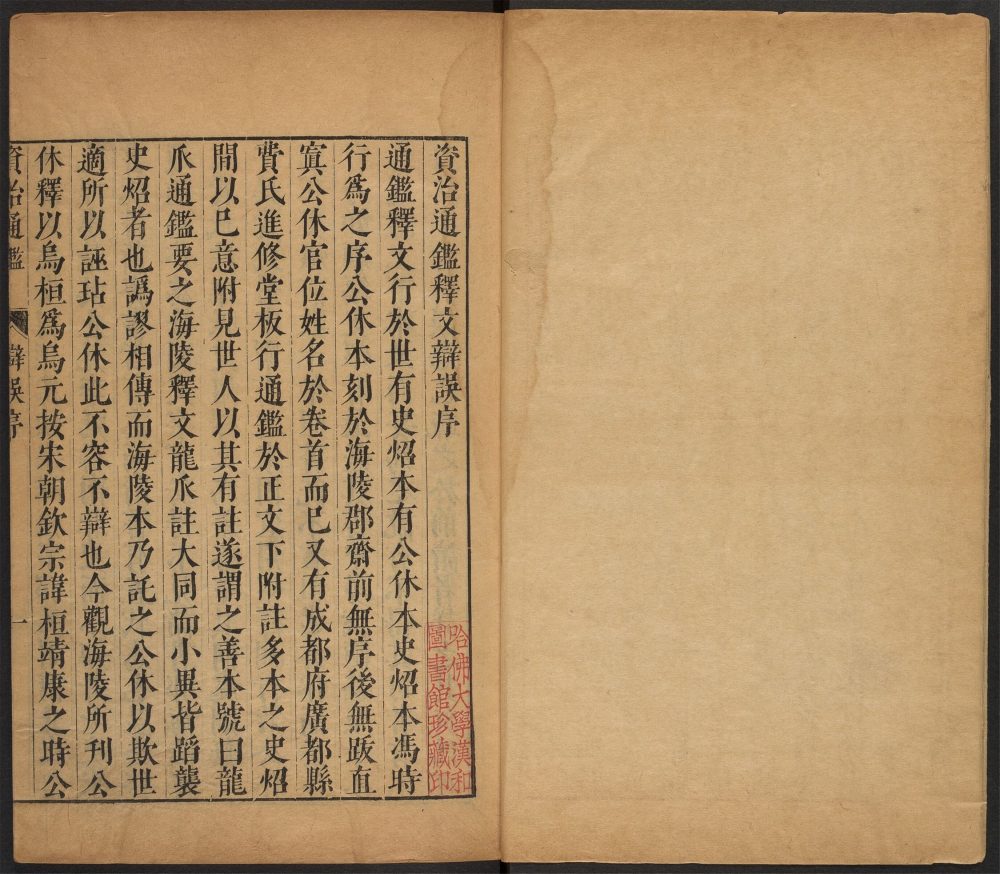 資治通鑑釋文辯誤序
通鑑釋文行於世有史炤本有公休本史炤本馮時
行爲之序公休本刻於海陵郡齋前無序後無跋直
寘公休官位姓名於卷首而已又有成都府廣都縣
費氏進修堂板行通鑑於正文下附註多本之史炤
間以已意附見世人以其有註遂謂之善本號曰龍
爪通鑑要之海陵釋文龍爪註大同而小異皆蹈襲
史炤者也譌謬相傳而海陵本乃託之公休以欺世
適所以誣玷公休此不容不辯也今觀海陵所刊公
休釋以烏桓爲烏元按宋朝欽宗諱桓靖康之時公
資治通鑑 辯誤序 一
哈佛大學漢和
圖書館珍藏印